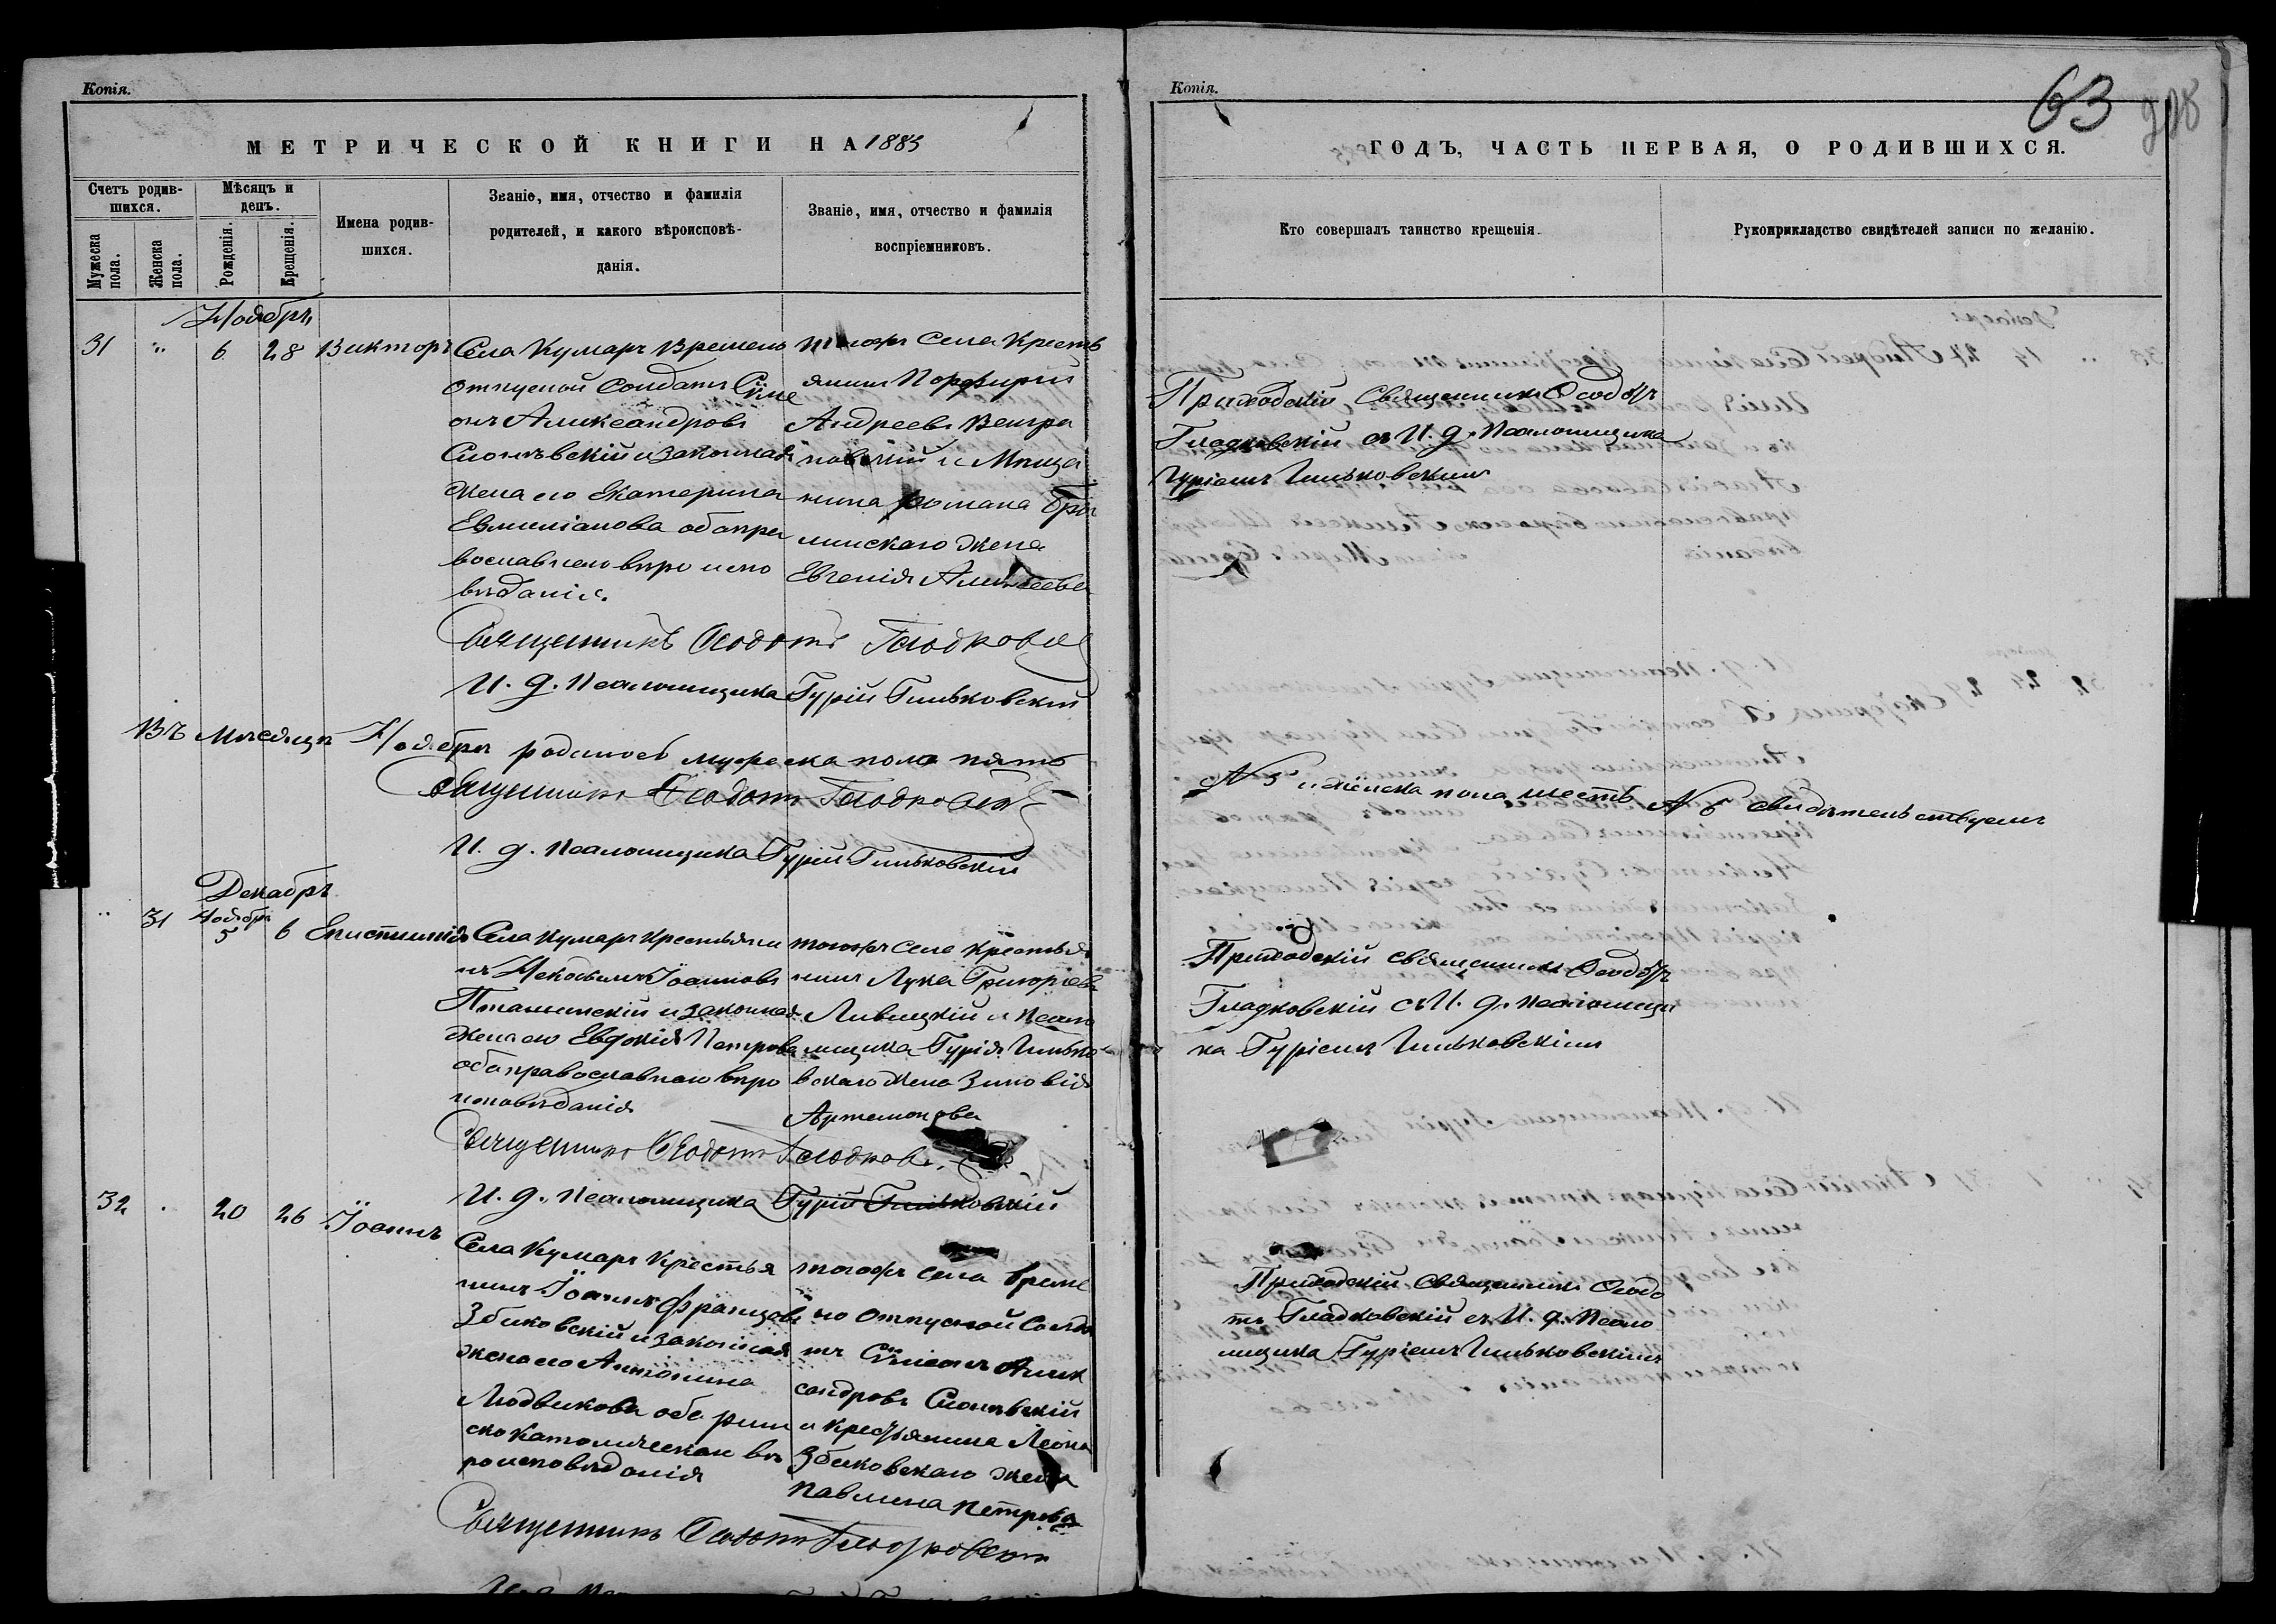 Копія.
МЕТРИЧЕСКОЙ КНИГИ НА 1883
Счетъ родив-
шихся.
Мѣсяцъ и
день.
Мужеска
пола.
Женска
пола.
Рожденія.
Крещенія.
Имена родив-
шихся.
Званіе, имя, отчество и фамилія
родителей, и какого вѣроисповѣ-
данія.
Званіе, имя, отчество и фамилія
воспріемниковъ.
Ноябрь
31 " 6 28 Викторъ
Села Кумаръ Временно
отпускной Солдатъ Сѵме
онъ Александровъ
и законная
жена его Екатерина
Евмиліанова оба пра
вославнаго вѣро испо
вѣданія.
тогожъ Села Кресть
янинъ Порфирій
Андреевъ Венгра
новскій и Мѣща
нина Романа
жена
Евгенія Алексѣева
Священникъ Ѳеодотъ Гладковскій
И. д. Псаломщика Гурій Гиньковскій
Въ Мѣсяцѣ Ноябрѣ родилось мужеска пола пять
Священникъ Ѳеодотъ Гладковскій
И. д. Псаломщика Гурій Гиньковскій
Декабрь
" 31 Ноября
5 6 Епистимія
Села Кумаръ Крестьяни
нъ Іоанновъ
и законная
жена его Евдокія Петрова
оба православнаго вѣро
исповѣданія
тогожъ Села Крестья
нинъ Лука Григоріевъ
Ливицкій и Псало
мщика Гурія Гинько
вскаго жена Зиновія
Артемонова
Священникъ Ѳеодотъ Гладковскій
И. д. Псаломщика Гурій Гиньковскій
32 " 20 26 Іоаннъ
Села Кумаръ Крестья
нинъ Іоаннъ Францовъ
Збиковскій и законная
жена его Антонина
Людвикова оба рим
ско католическаго вѣ
роисповѣданія
тогожъ Села Време
но отпускной Солда
тъ Сѵмеонъ Алек
сандровъ
и крестьянина Леона
Збиковскаго жена
Павлина Петрова
Священникъ Ѳеодотъ Гладковскій
Копія.
63
ГОДЪ, ЧАСТЬ ПЕРВАЯ, О РОДИВШИХСЯ.
Кто совершалъ таинство крещенія.
Рукоприкладство свидѣтелей записи по желанію.
Приходскій Священникъ Ѳеодотъ
Гладковскій съ И. д. Псаломщика
Гуріемъ Гиньковскимъ
№ 5 и женска пола шесть № 6 свидѣтельствуемъ
Приходскій священникъ Ѳеодотъ
Гладковскій съ И. д. Псаломщи
ка Гуріемъ Гиньковскимъ
Приходскій Священникъ Ѳеодо
тъ Гладковскій съ И. д. Псало
мщика Гуріемъ Гиньковскимъ